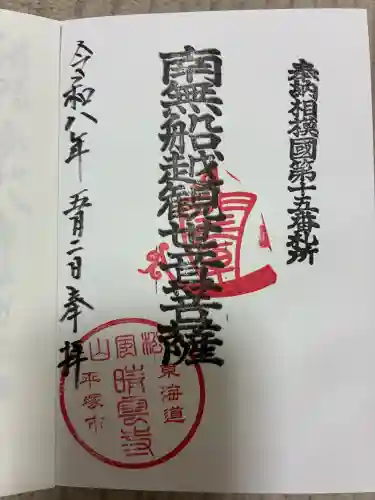 奉納相撲國第十五番札所
南無船越観世音菩薩
令和八年 五月二日 奉拝
東海道
松風山
平塚市
晴雲寺